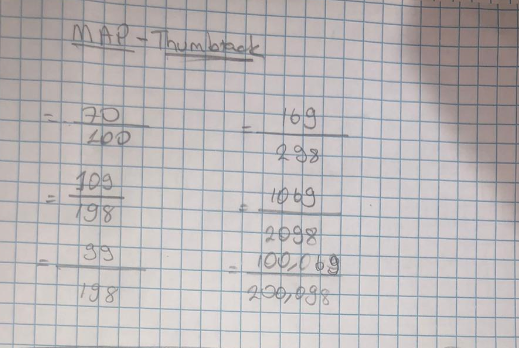 MAP - Thumbtack
= 70/100
= 109/198
= 99/198
= 169/298
= 1069/2098
= 100,069/200,098